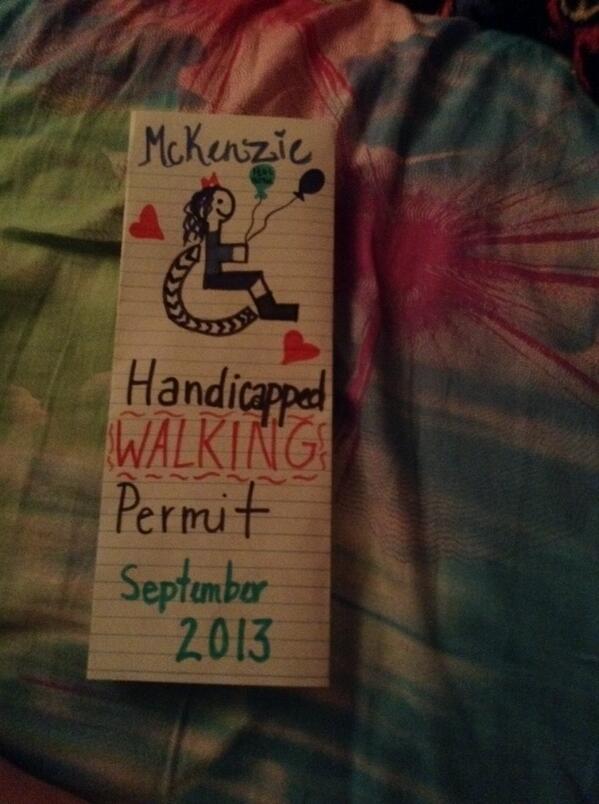 McKenzie
Handicapped
WALKING
Permit
September
2013